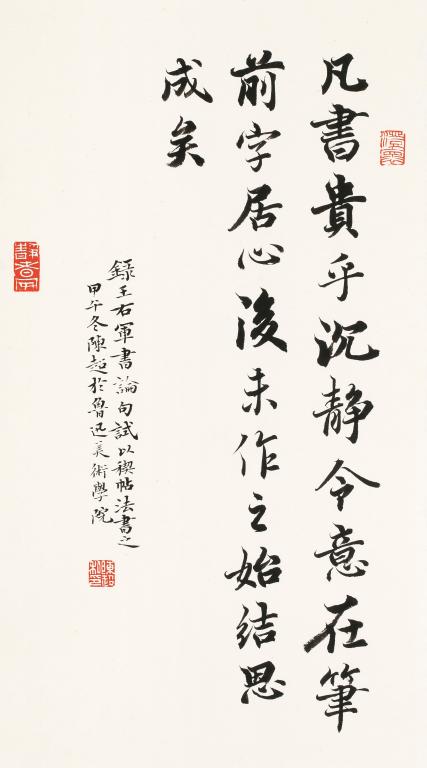 凡書貴乎沉静令意在筆
前字居心後未作之始結思
成矣
録王右軍書論句試以禊帖法書之
甲午冬陳超於魯迅美術學院